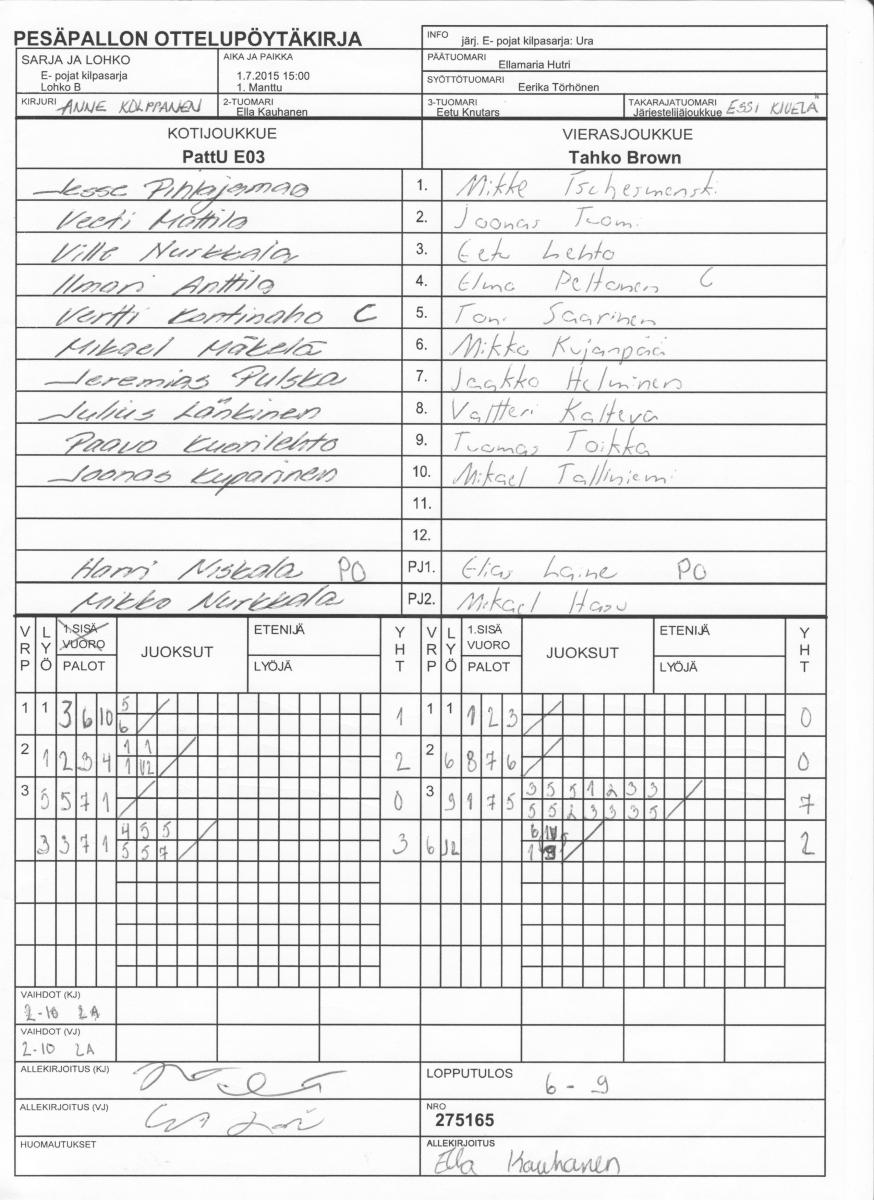 PESÄPALLON OTTELUPÖYTÄKIRJA
INFO järj. E- pojat kilpasarja: Ura
SARJA JA LOHKO
E- pojat kilpasarja
Lohko B
AIKA JA PAIKKA
1.7.2015 15:00
1. Manttu
PÄÄTUOMARI Ellamaria Hutri
SYÖTTÖTUOMARI Eerika Törhönen
KIRJURI ANNE KOLPPANEN
2-TUOMARI Ella Kauhanen
3-TUOMARI Eetu Knutars
TAKARAJATUOMARI Järjestelijäjoukkue ESSI KIVELÄ
KOTIJOUKKUE VIERASJOUKKUE
PattU E03 Tahko Brown
Jesse Pihlajamaa 1. Mikke
Veeti Mattila 2. Joonas Tuomi
Ville Nurkkala 3. Eetu Lehto
Ilmari Anttila 4. Elmo Peltonen C
Vertti Kontinaho C 5. Toni Saarinen
Mikael Mäkelä 6. Mikko Kujanpää
Jeremias Pulska 7. Jaakko Helminen
Julius Länkinen 8. Valtteri Kalteva
Paavo Kuorilehto 9. Tuomas Toikka
Joonas Kuparinen 10. Mikael Talliniemi
11.
12.
Harri Niskala PO PJ1. Elias Laine PO
Mikko Nurkkala PJ2. Mikael Hasu
VRP LYÖ 1.SISÄ VUORO PALOT JUOKSUT ETENIJÄ LYÖJÄ YHT VRP LYÖ 1.SISÄ VUORO PALOT JUOKSUT ETENIJÄ LYÖJÄ YHT
1 1 3 6 10 5 1 1 1 1 2 3 0
6
2 1 2 3 4 1 1 2 2 6 8 7 6 0
1 V2
3 5 5 7 1 0 3 9 1 7 5 3 5 5 1 2 3 3 7
5 5 2 3 3 3 5
3 3 7 1 4 5 5 3 6 J2 6 2
5 5 7 1
VAIHDOT (KJ)
2-10 2A
VAIHDOT (VJ)
2-10 2A
ALLEKIRJOITUS (KJ)
LOPPUTULOS 6 - 9
ALLEKIRJOITUS (VJ)
NRO
275165
HUOMAUTUKSET
ALLEKIRJOITUS
Ella Kauhanen